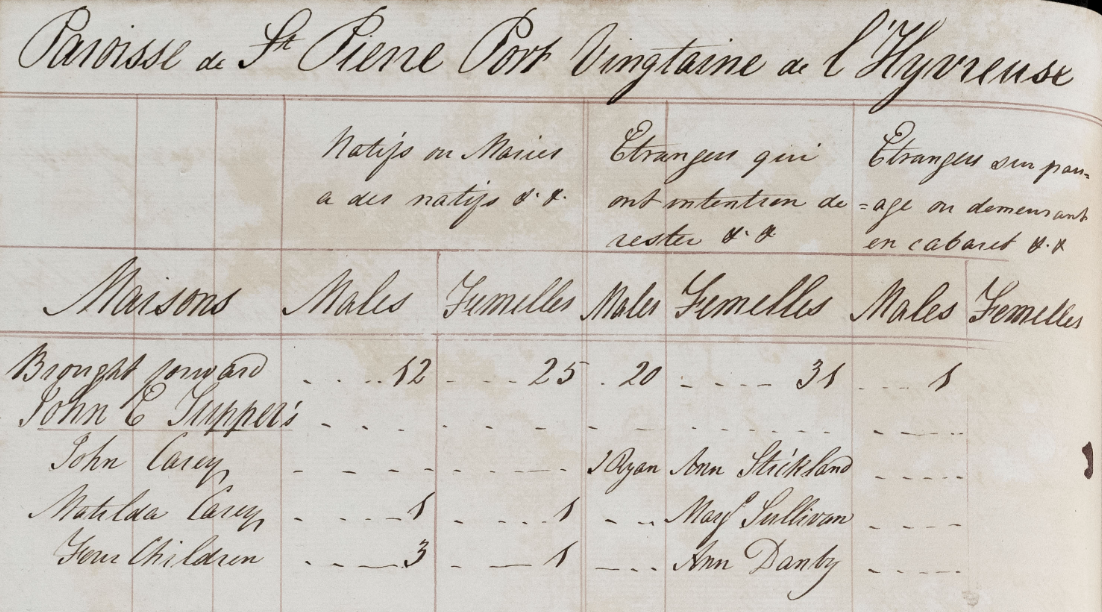 Paroisse de St Pierre Port Vingtaine de l'Hyvreuse
Natifs ou Maries
a des natifs &. &.
Etrangers qui
ont intention de
rester &. &
Etrangers sur pass=
=age ou demeurant
en cabaret &. &
Maisons Males Femelles Males Femelles Males Femelles
Brought forward 12 25 20 31 1
John E Tupper's
John Carey J Ryan Ann Stickland
Matilda Carey 1 1 Mary Sullivan
Four Children 3 1 Ann Danby